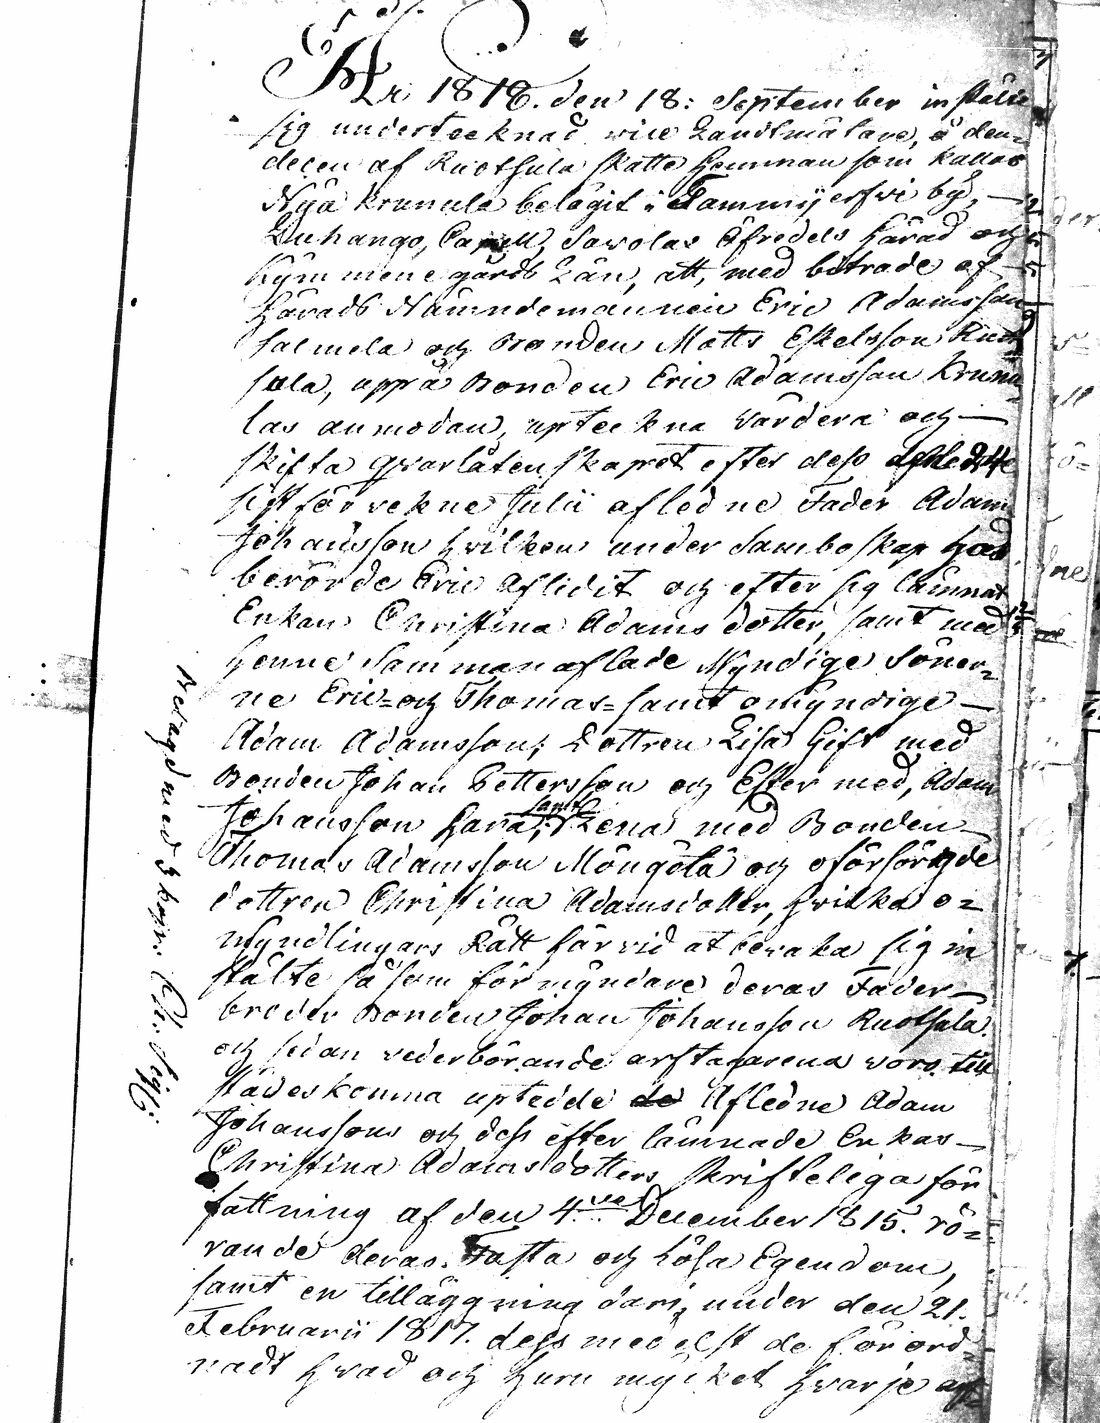 År 1818. den 18: September instälte
sig undertecknad vice Landtmätare, å den
delen af Ruotsula skatte Hemman som kallas
Nya Krunula belägit i Tammijerfvi by,
Luhango, Capell, Savolax Öfredels härad och
Kymmenegårds Län, att, med biträde af
Härads Nämndemannen Eric Adamsson
Salmela och Bonden Matts Eskelsson Ruot
sala, uppå Bonden Eric Adamsson Krunu
las anmodan, upteckna Värdera och
skifta qvarlåtenskapet efter dess
sistförvekne Julii afledne Fader Adam
Johansson hvilken under Samboskap had
berörde Eric Aflidit och efter sig lämnat
Enkan Christina Adams dotter, samt med
henne Sammanaflade Myndige Söner=
ne Eric= och Thomas= samt omyndige
Adam Adamsson; Dottren Lisa Gift med
Bonden Johan Pettersson och Ester med, Adam
Johansson Hara, samt Lena med Bonden
Thomas Adamsson Möngölä och oförsörgde
dottren Christina Adamsdotter, hvilka o=
myndlingars Rätt härvid at bevaka sig in
stälte såsom förmyndare deras Fader
broder Bonden Johan Johansson Ruotsala.
och sedan vederbörande arftagarena voro till
städeskomna uptedde de Afledne Adam
Johanssons och dess efterlämnade Enkas
Christina Adamsdotters skrifteliga för
fattning af den 4de December 1815. rö=
rande deras Fasta och Lösa Egendom,
samt en tilläggning dari, under den 21.
Februarii 1817. dess medelst de förord
nadt hvad och huru mycket hvarje arf=